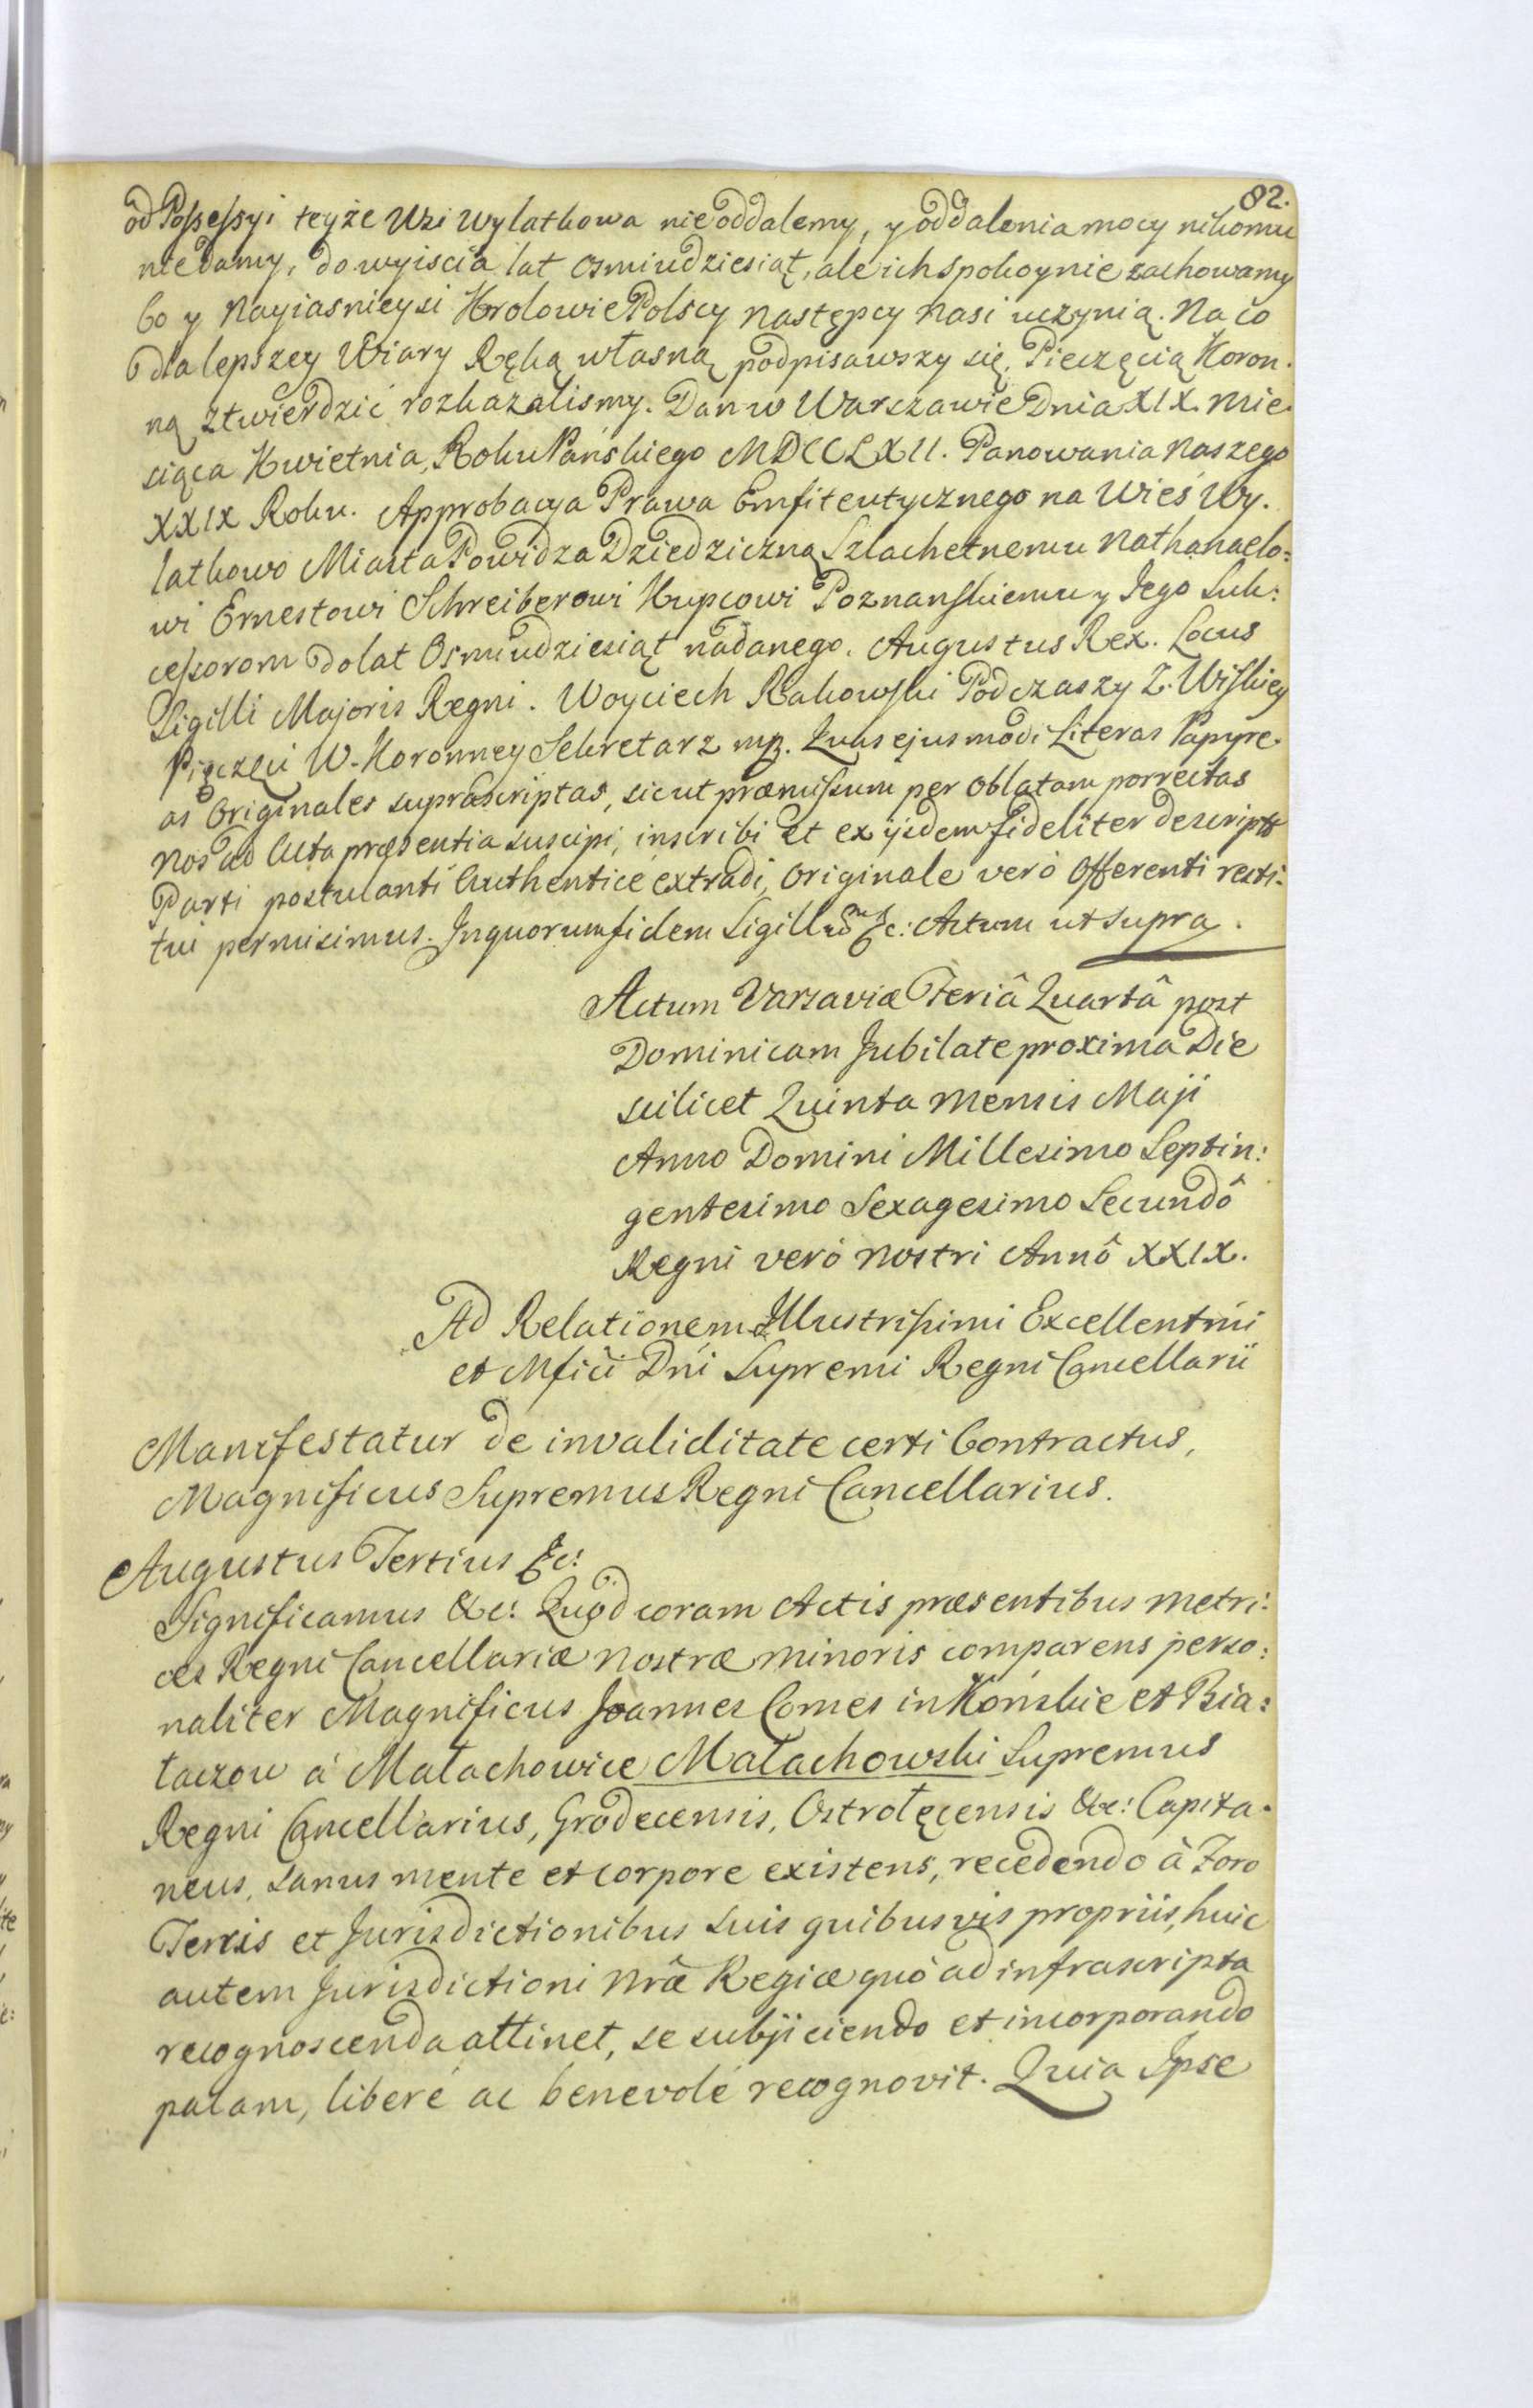 82.
od Possessyi teyże Wsi Wylatkowa nie oddalemy, y oddalenia mocy nikomu
nie damy, do wyiscia lat osmiudziesiąt, ale ich spokoynie zachowamy
bo y Nayiasnieysi Krolowie Polscy Następcy Nasi uczynią. Na co
dla lepszey Wiary Ręką własną podpisawszy się, Pieczęcią Koron-
ną ztwierdzić rozkazalismy. Dan w Warszawie Dnia XIX. Mie-
siąca Kwietnia, Roku Pańskiego MDCCLXII. Panowania Naszego
XXIX Roku. Approbacya Prawa Emfiteutycznego na Wieś Wy-
latkowo Miasta Powidza Dziedziczną Szlachetnemu Nathanaelo:
wi Ernestowi Schreiberowi Kupcowi Poznanskiemu y Jego Suk:
cessorom do lat Osmiudziesiąt nadanego. Augustus Rex. Locus
Sigilli Majoris Regni. Woyciech Rakowski Podczaszy Z. Wiskiey
Pięczęci W. Koronney Sekretarz mp. Quas ejusmodi Literas Papyre-
as Originales suprascriptas, sicut præmissum per Oblatam porrectas
Nos ad Acta præsentia suscipi, inscribi et ex ijsdem fideliter descriptas
Parti postulanti Authenticè extradi, Originale verò Offerenti resti-
tui permisimus. In quorum fidem Sigillum &c: Actum ut supra.
Actum Varsaviæ Feriâ Quartâ post
Dominicam Jubilate proxima Die
scilicet Quinta Mensis Maji
Anno Domini Millesimo Septin:
gentesimo Sexagesimo Secundô
Regni verò Nostri Annô XXIX.
Ad Relationem Illustrissimi Excellentmi
et Mfici Dni Supremi Regni Cancellarii
Manifestatur de invaliditate certi Contractus,
Magnificus Supremus Regni Cancellarius.
Augustus Tertius &c:
Significamus &c: Quod coram Actis præsentibus Metri:
ces Regni Cancellariæ Nostræ Minoris comparens perso:
naliter Magnificus Joannes Comes in Końskie et Bia:
łaczow à Małachowice Małachowski Supremus
Regni Cancellarius, Grodecensis, Ostrołęcensis &c: Capita-
neus, sanus mente et corpore existens, recedendo à Foro
Terris et Jurisdictionibus suis quibusvis propriis, huic
autem Jurisdictioni Nrâ Regiæ quò ad infrascripta
recognoscenda attinet, se subjiciendo et incorporando
palam, liberè ac benevolè recognovit. Quia Ipse